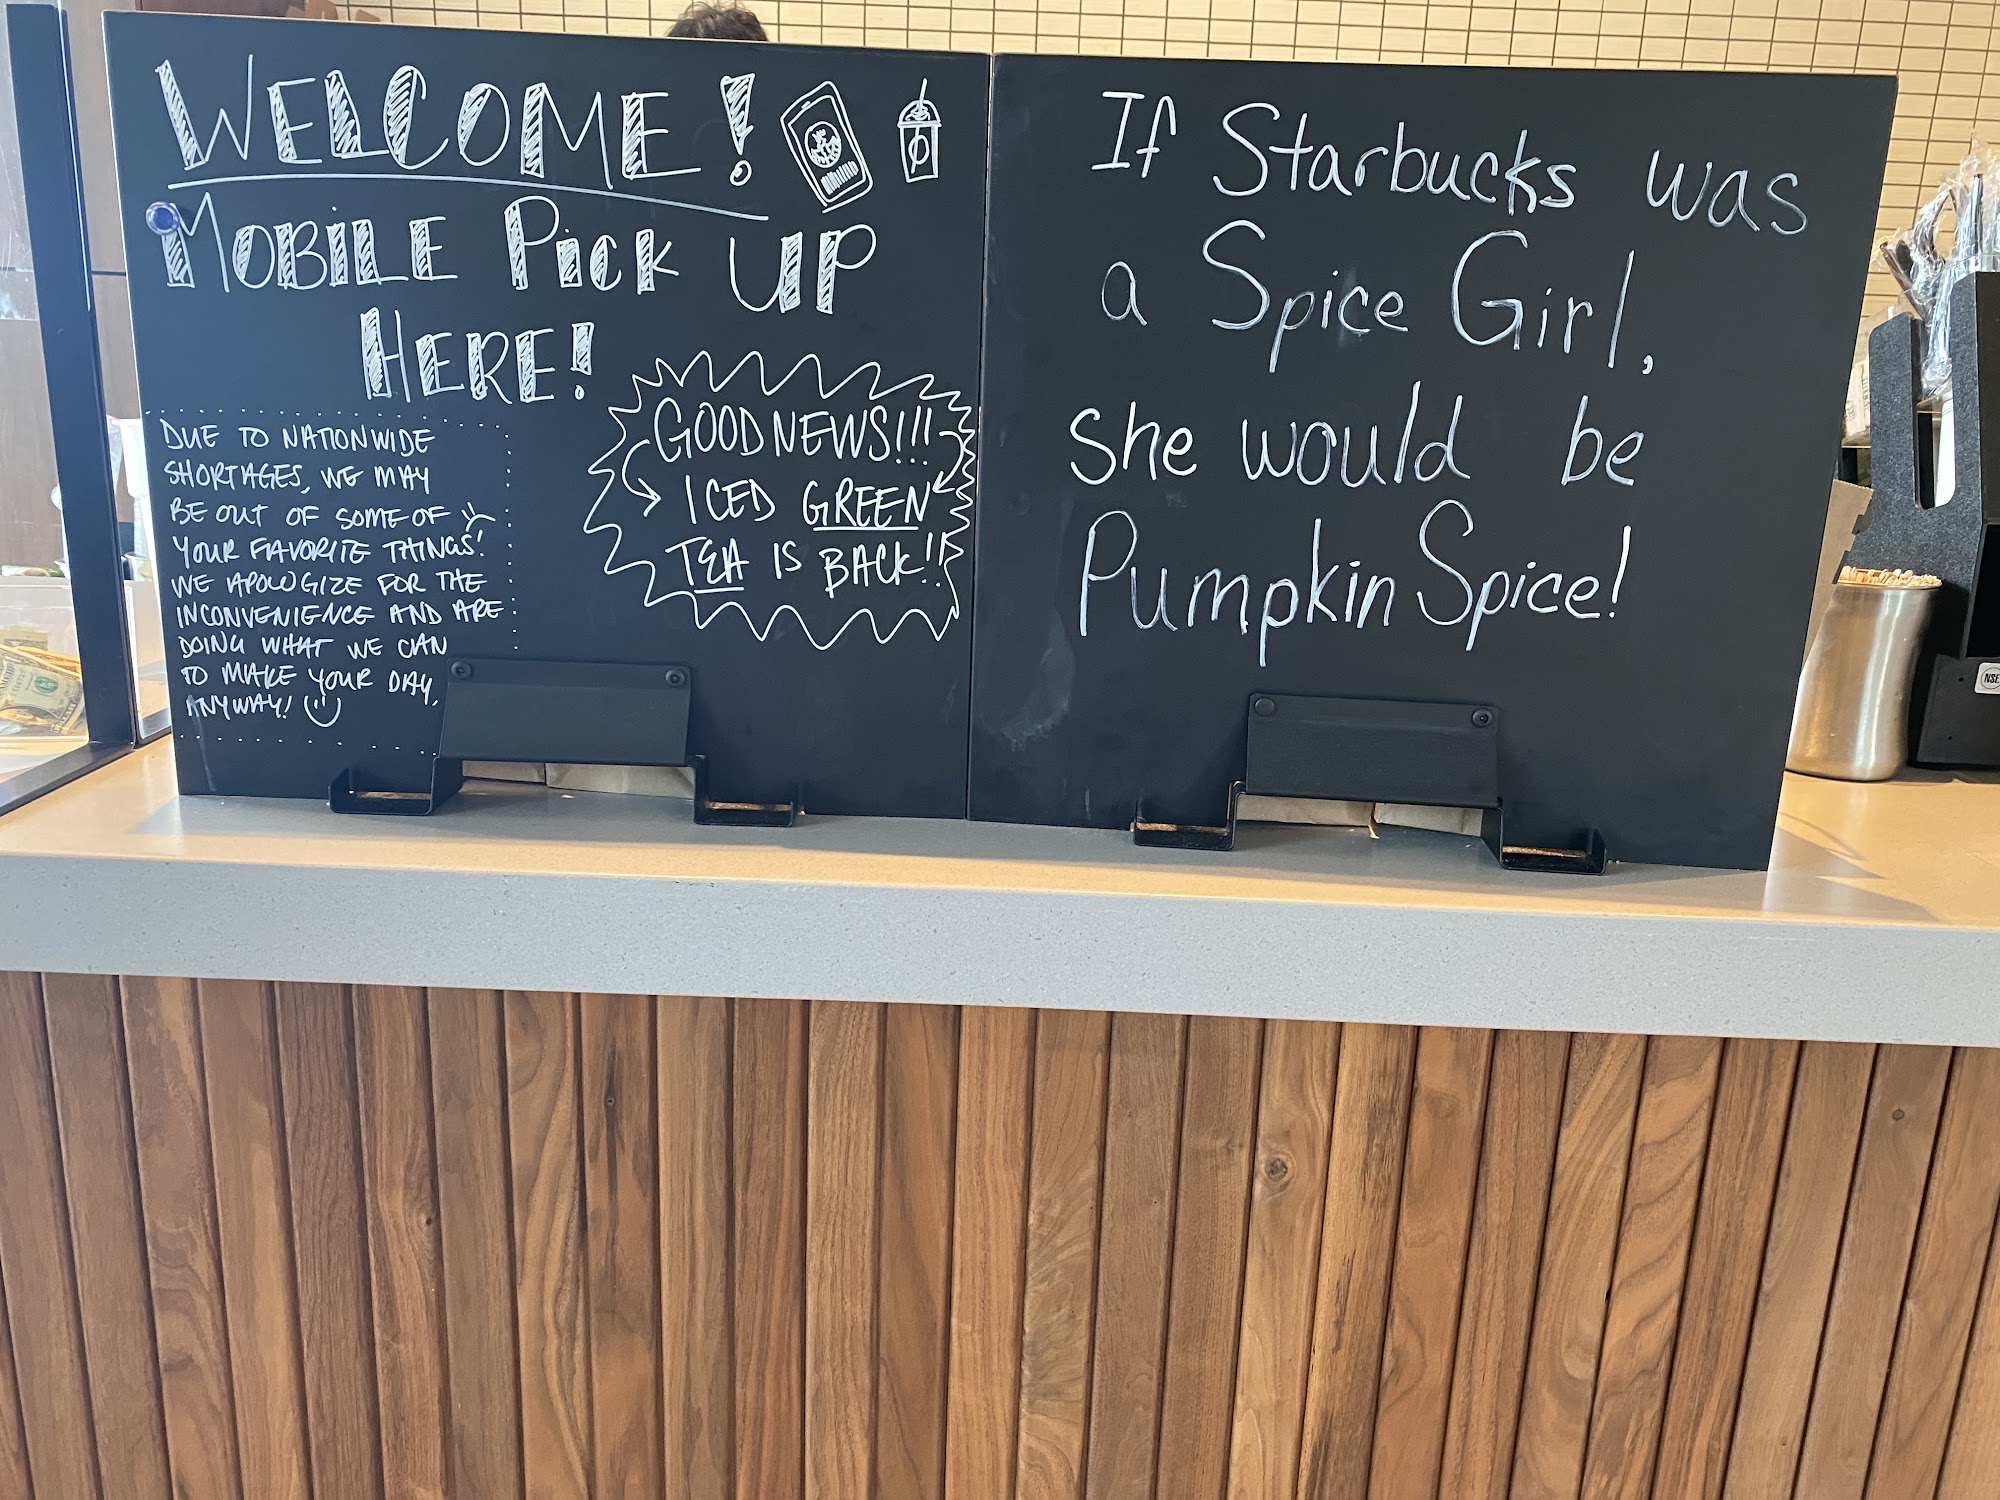 WELCOME!
MOBILE PICK UP
HERE!
DUE TO NATIONWIDE
SHORTAGES, WE MAY
BE OUT OF SOME OF
YOUR FAVORITE THINGS!
WE APOLOGIZE FOR THE
INCONVENIENCE AND ARE
DOING WHAT WE CAN
TO MAKE YOUR DAY,
ANYWAY!
GOOD NEWS!!!
ICED GREEN
TEA IS BACK!!
If Starbucks was
a Spice Girl,
she would be
Pumpkin Spice!
NSF